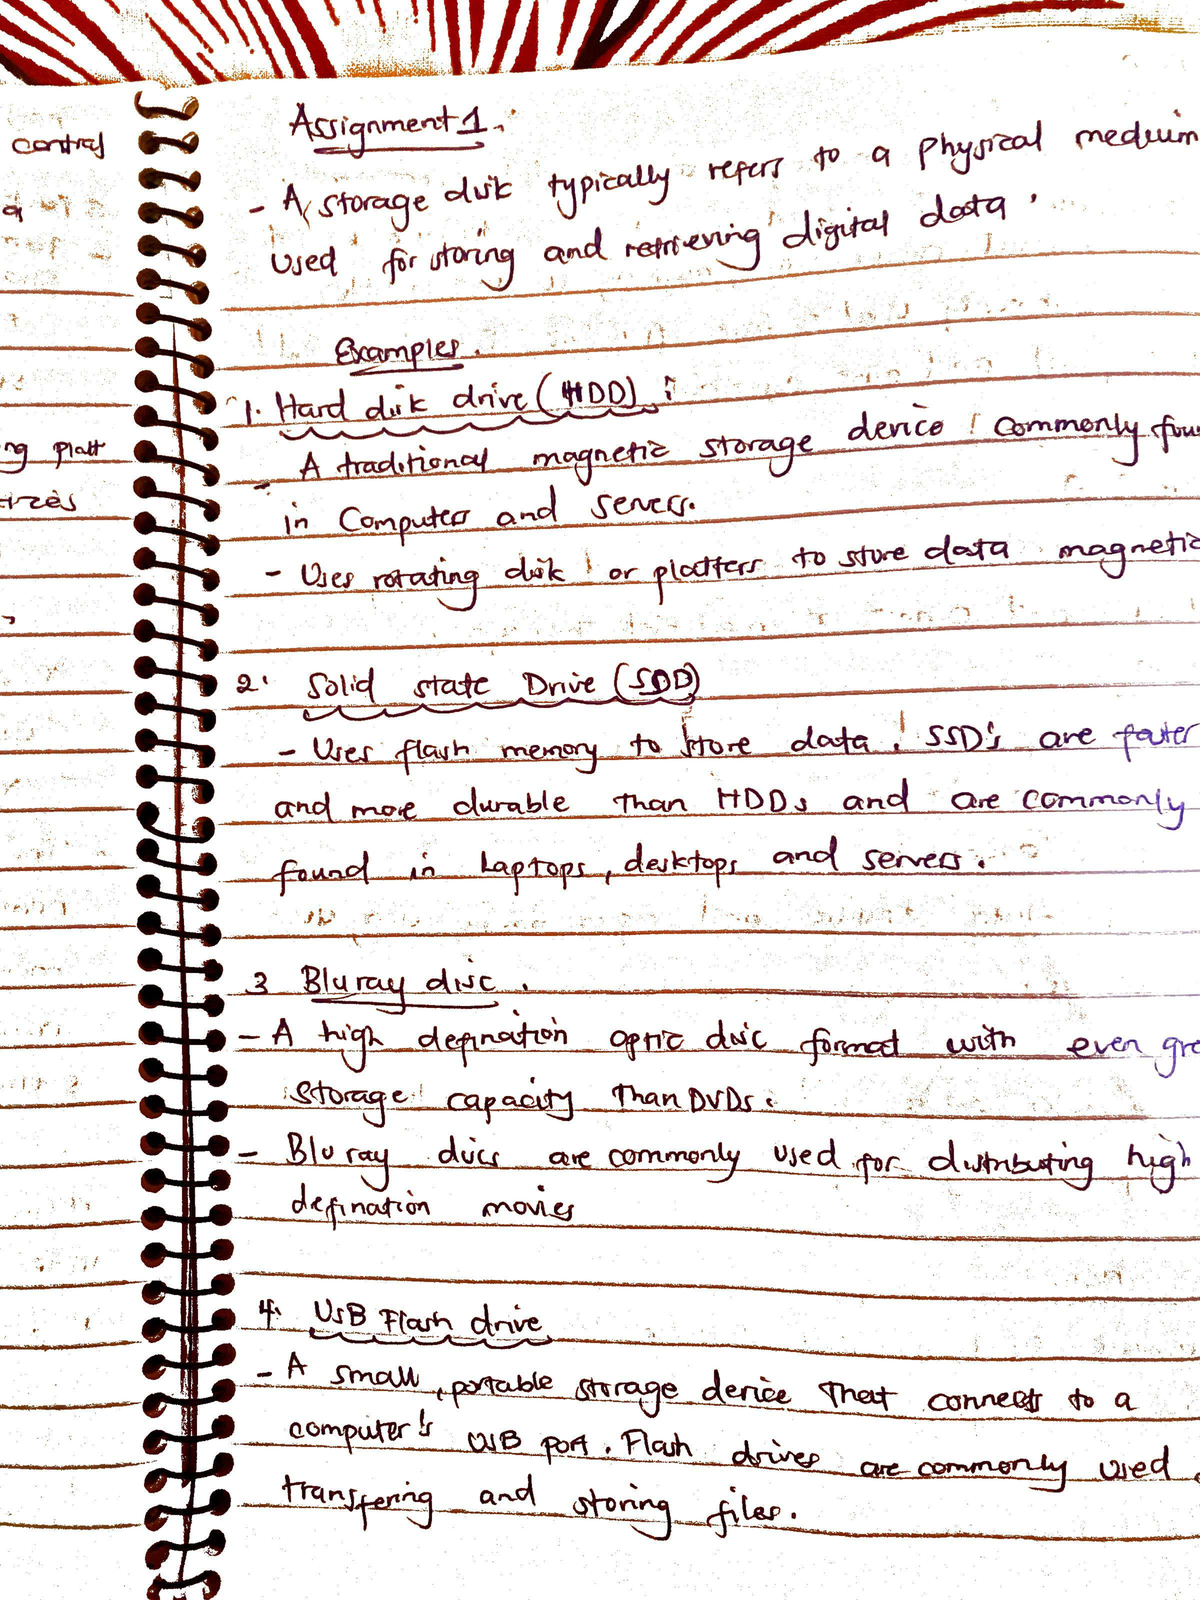 control
Assignment 1.
- A storage disk typically refers to a physical medium
used for storing and retrieving digital data.
Examples.
1. Hard disk drive (HDD):
- A traditional magnetic storage device. Commonly fou
in Computers and servers.
- Uses rotating disk or platters to store data magnetic
ng platt
2. Solid state Drive (SDD)
- Uses flash memory to store data. SSD's are faster
and more durable than HDDs and are commonly
found in Laptops, desktops and servers.
3 Bluray disc.
- A high defination optic disc format with even gre
storage capacity than DVDs.
- Bluray discs are commonly used for distributing high
defination movies
4. USB Flash drive
- A small, portable storage device that connects to a
computer's USB port. Flash drives are commonly used
transfering and storing files.